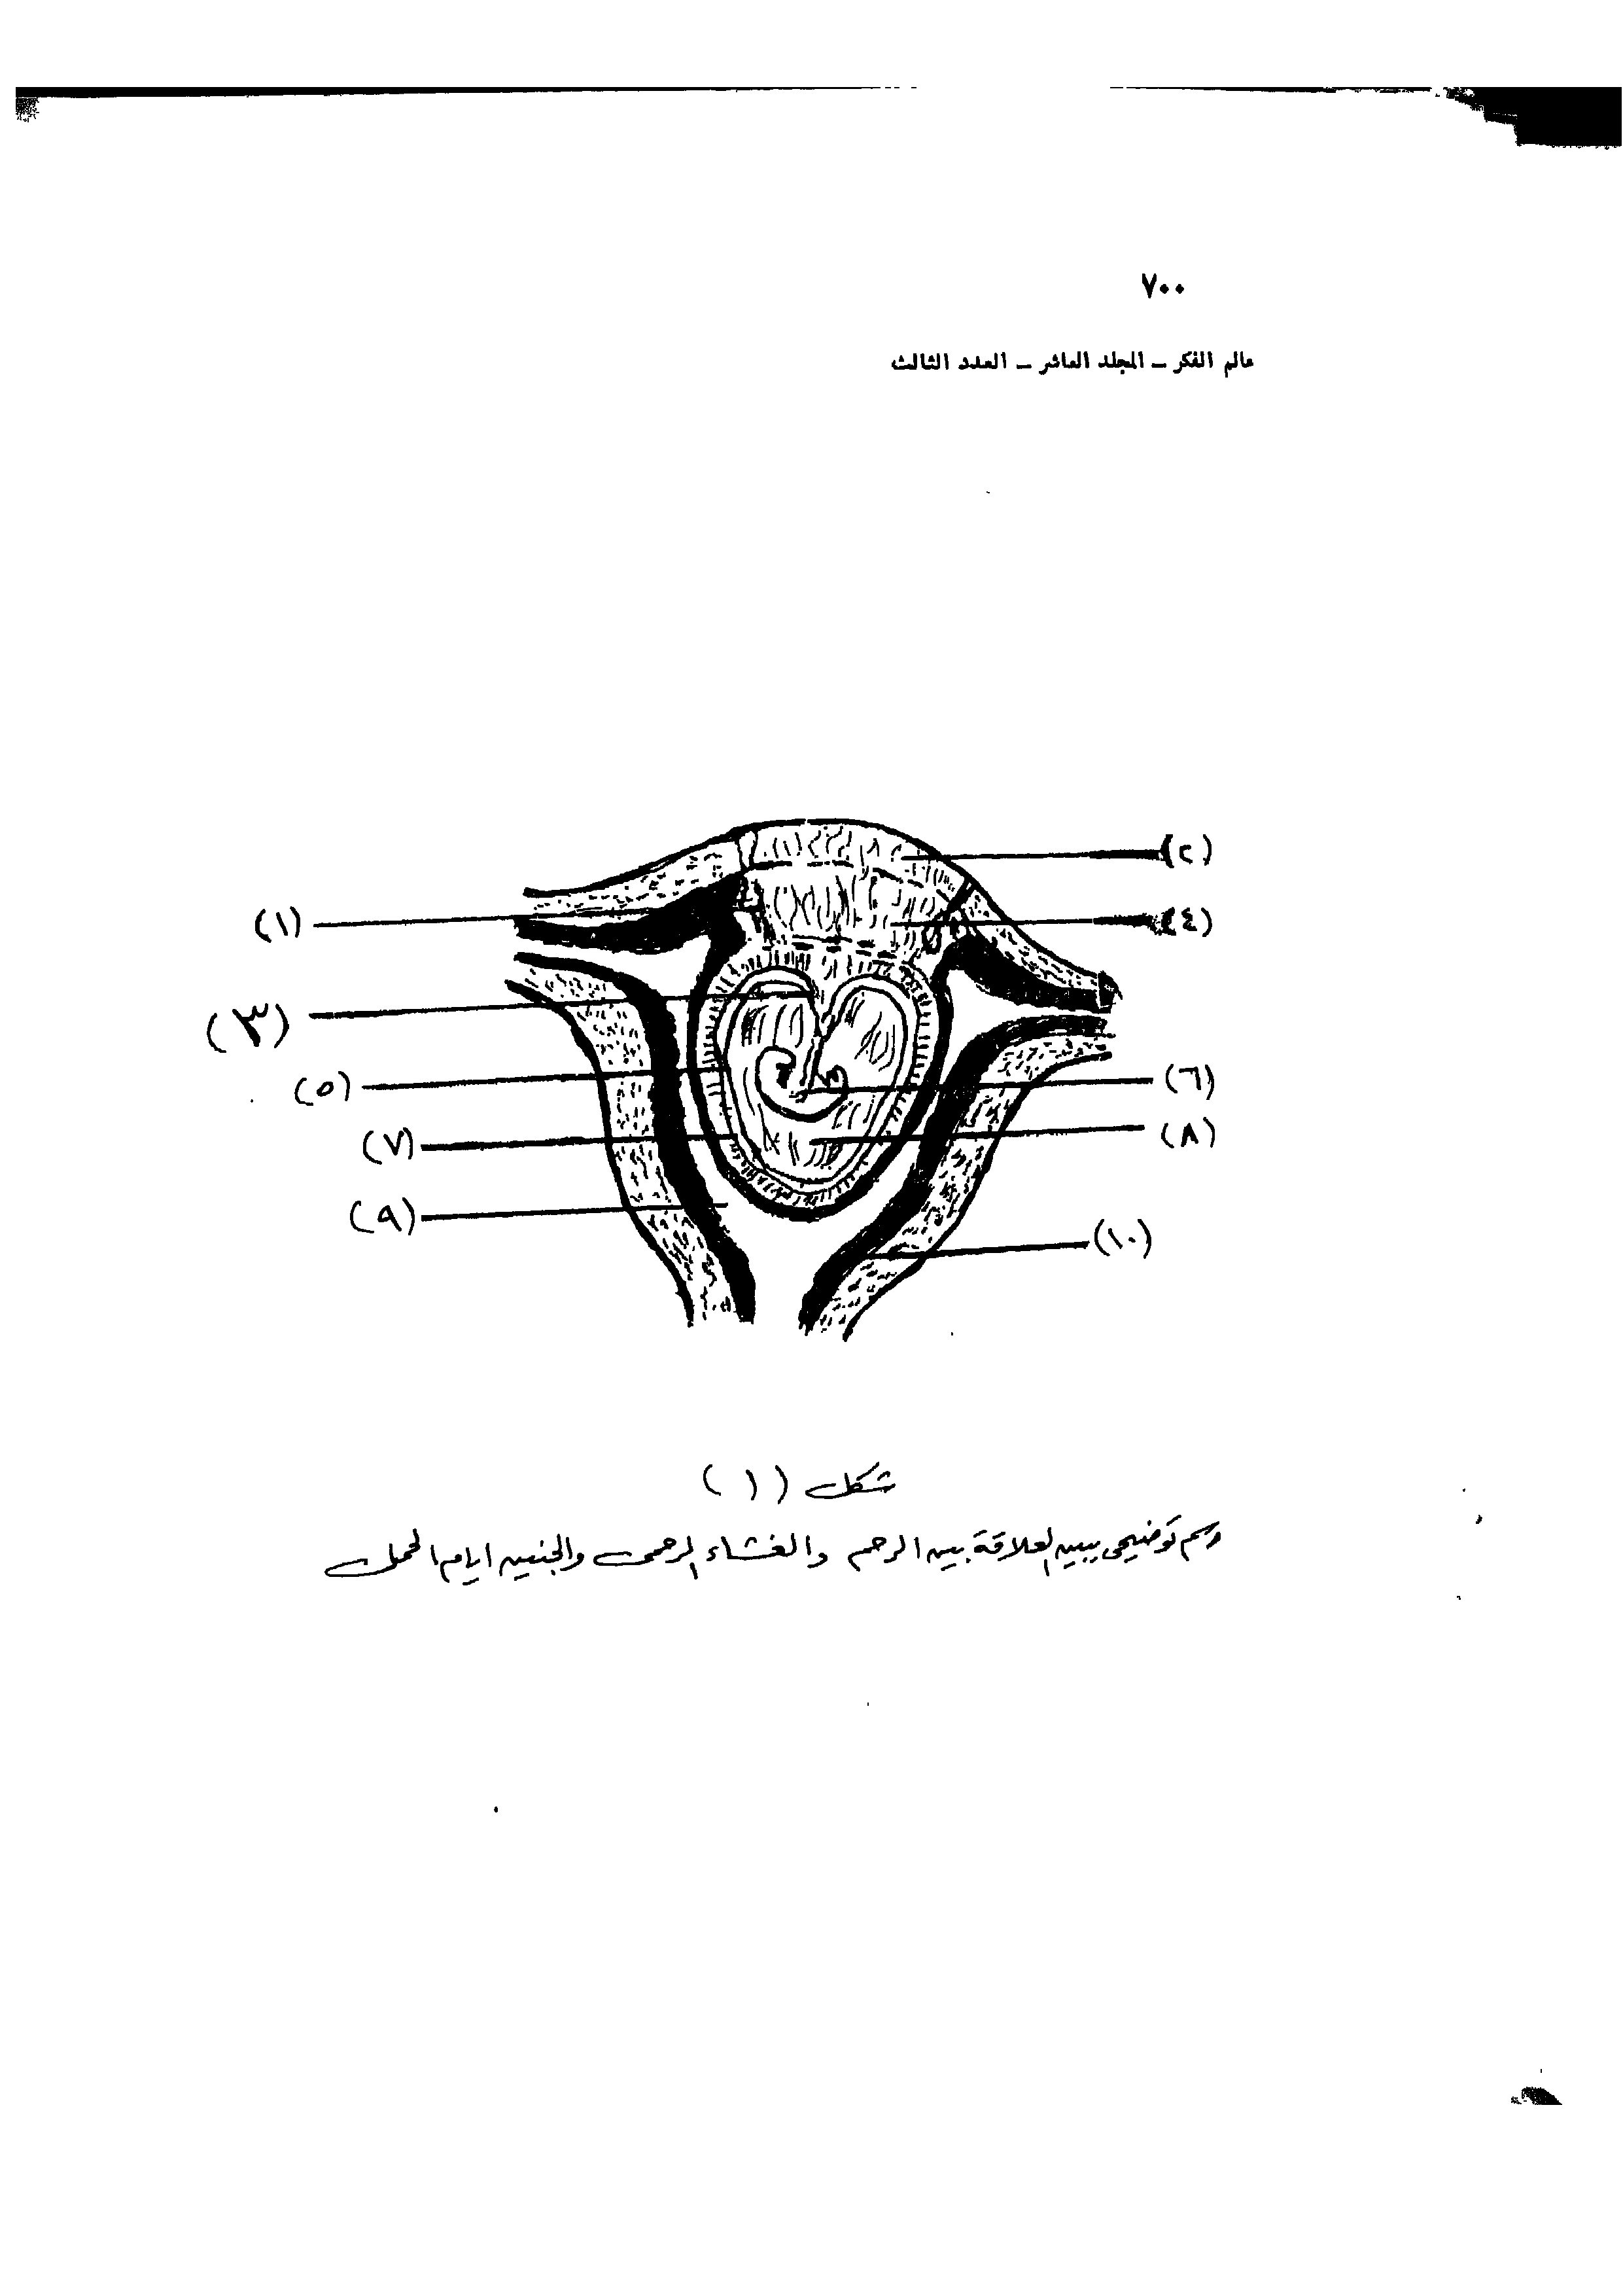 ٧٠٠
عالم الفكر ــ المجلد العاشر ــ العدد الثالث
(٢)
(١)
(٤)
(٣)
(٥)
(٦)
(٧)
(٨)
(٩)
(١٠)
شكل (١)
رسم توضيحى يبين العلاقة بين الرحم والغشاء الرحمى والجنين ايام الحمل